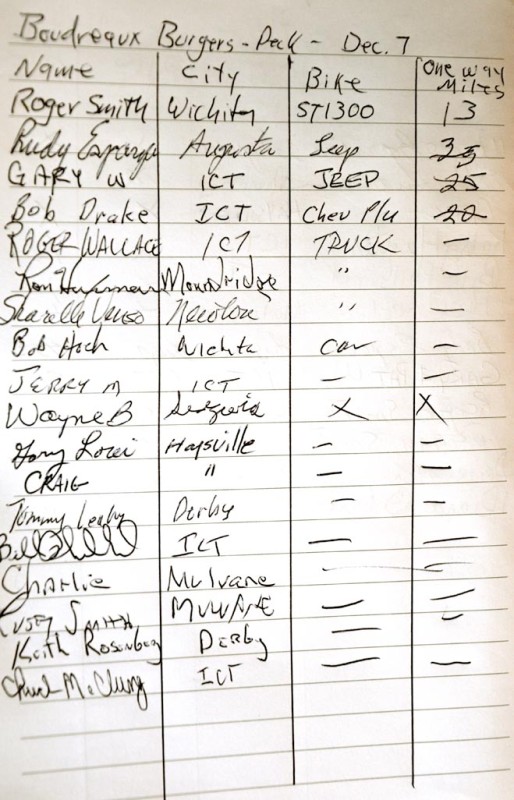 Boudreaux Burgers - Peck - Dec. 7
Name City Bike One way Miles
Roger Smith Wichita ST1300 13
Rudy Esparza Augusta Jeep 35
GARY W ICT JEEP 25
Bob Drake ICT Chev Plu 20
ROGER WALLACE ICT TRUCK —
Ron Moundridge " —
Sharelle Newton " —
Bob Hoch Wichita car —
JERRY M ICT — —
Wayne B Sedgwick X X
Gary Haysville — —
CRAIG " — —
Tommy Derby — —
Bill ICT — —
Charlie Mulvane — —
SMITH MULVANE — —
Keith Rosenberg DERBY — —
Chuck McClung ICT — —